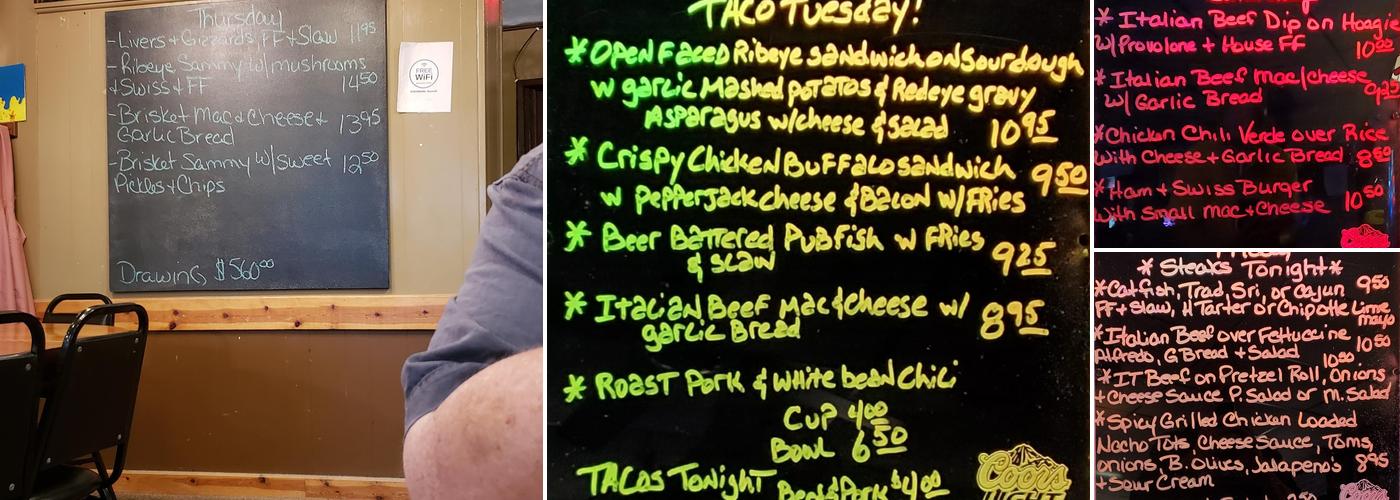 Thursday
- Livers + Gizzards, FF + Slaw 11.95
- Ribeye Sammy w/ mushrooms
+ Swiss + FF 14.50
- Brisket Mac & Cheese + 13.95
Garlic Bread
- Brisket Sammy w/ Sweet 12.50
Pickles + Chips
Drawing $560.00
FREE
WiFi
TACO Tuesday!
* Open Faced Ribeye sandwich on sourdough
w garlic Mashed potatos & Redeye gravy
Asparagus w/cheese & salad 10.95
* Crispy Chicken Buffalo sandwich 9.50
w Pepperjack cheese & Bacon w/ FRies
* Beer Battered Pub fish w FRies 9.25
& slaw
* Italian Beef Mac & cheese w/ 8.95
garlic Bread
* Roast Pork & white bean Chili
Cup 4.00
Bowl 6.50
TACOs Tonight Beef & Pork $4.00
Coors
LIGHT
* Italian Beef Dip on Hoagie
w/ Provolone + House FF 10.00
* Italian Beef Mac/cheese
w/ Garlic Bread
* Chicken Chili Verde over Rice
with Cheese + Garlic Bread
* Ham + Swiss Burger
with Small Mac + Cheese 10.50
* Steaks Tonight *
* Catfish, Trad. Sri, or Cajun 9.50
FF + Slaw, H Tarter or Chipotle Lime
mayo
* Italian Beef over Fettuccine 10.50
Alfredo, G Bread + Salad
* IT Beef on Pretzel Roll, Onions 10.50
+ Cheese Sauce P. Salad or M. Salad
* Spicy Grilled Chicken Loaded
Nacho Tots, Cheese Sauce, Toms,
onions, B. Olives, Jalapeno's 8.95
+ Sour Cream